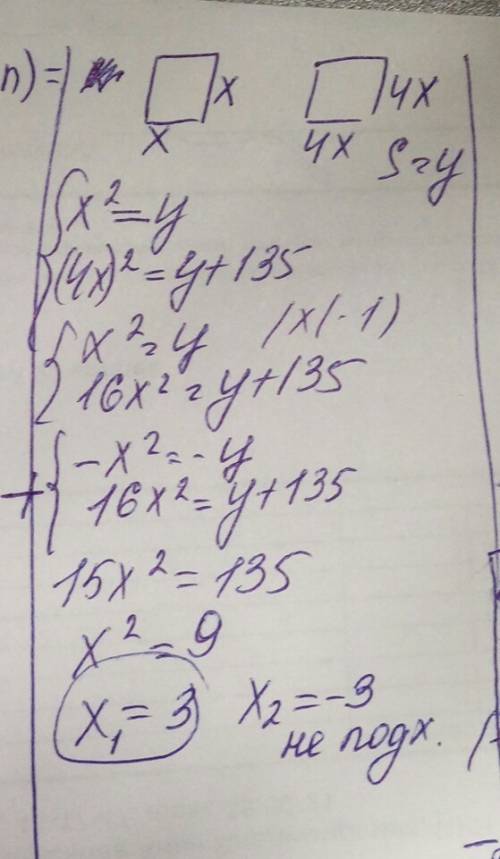 n) =
x 4x
x 4x S = y
x² = y
(4x)² = y + 135
x² = y / x (-1)
16x² = y + 135
-x² = -y
+ 16x² = y + 135
15x² = 135
x² = 9
x₁ = 3 x₂ = -3
не подх.